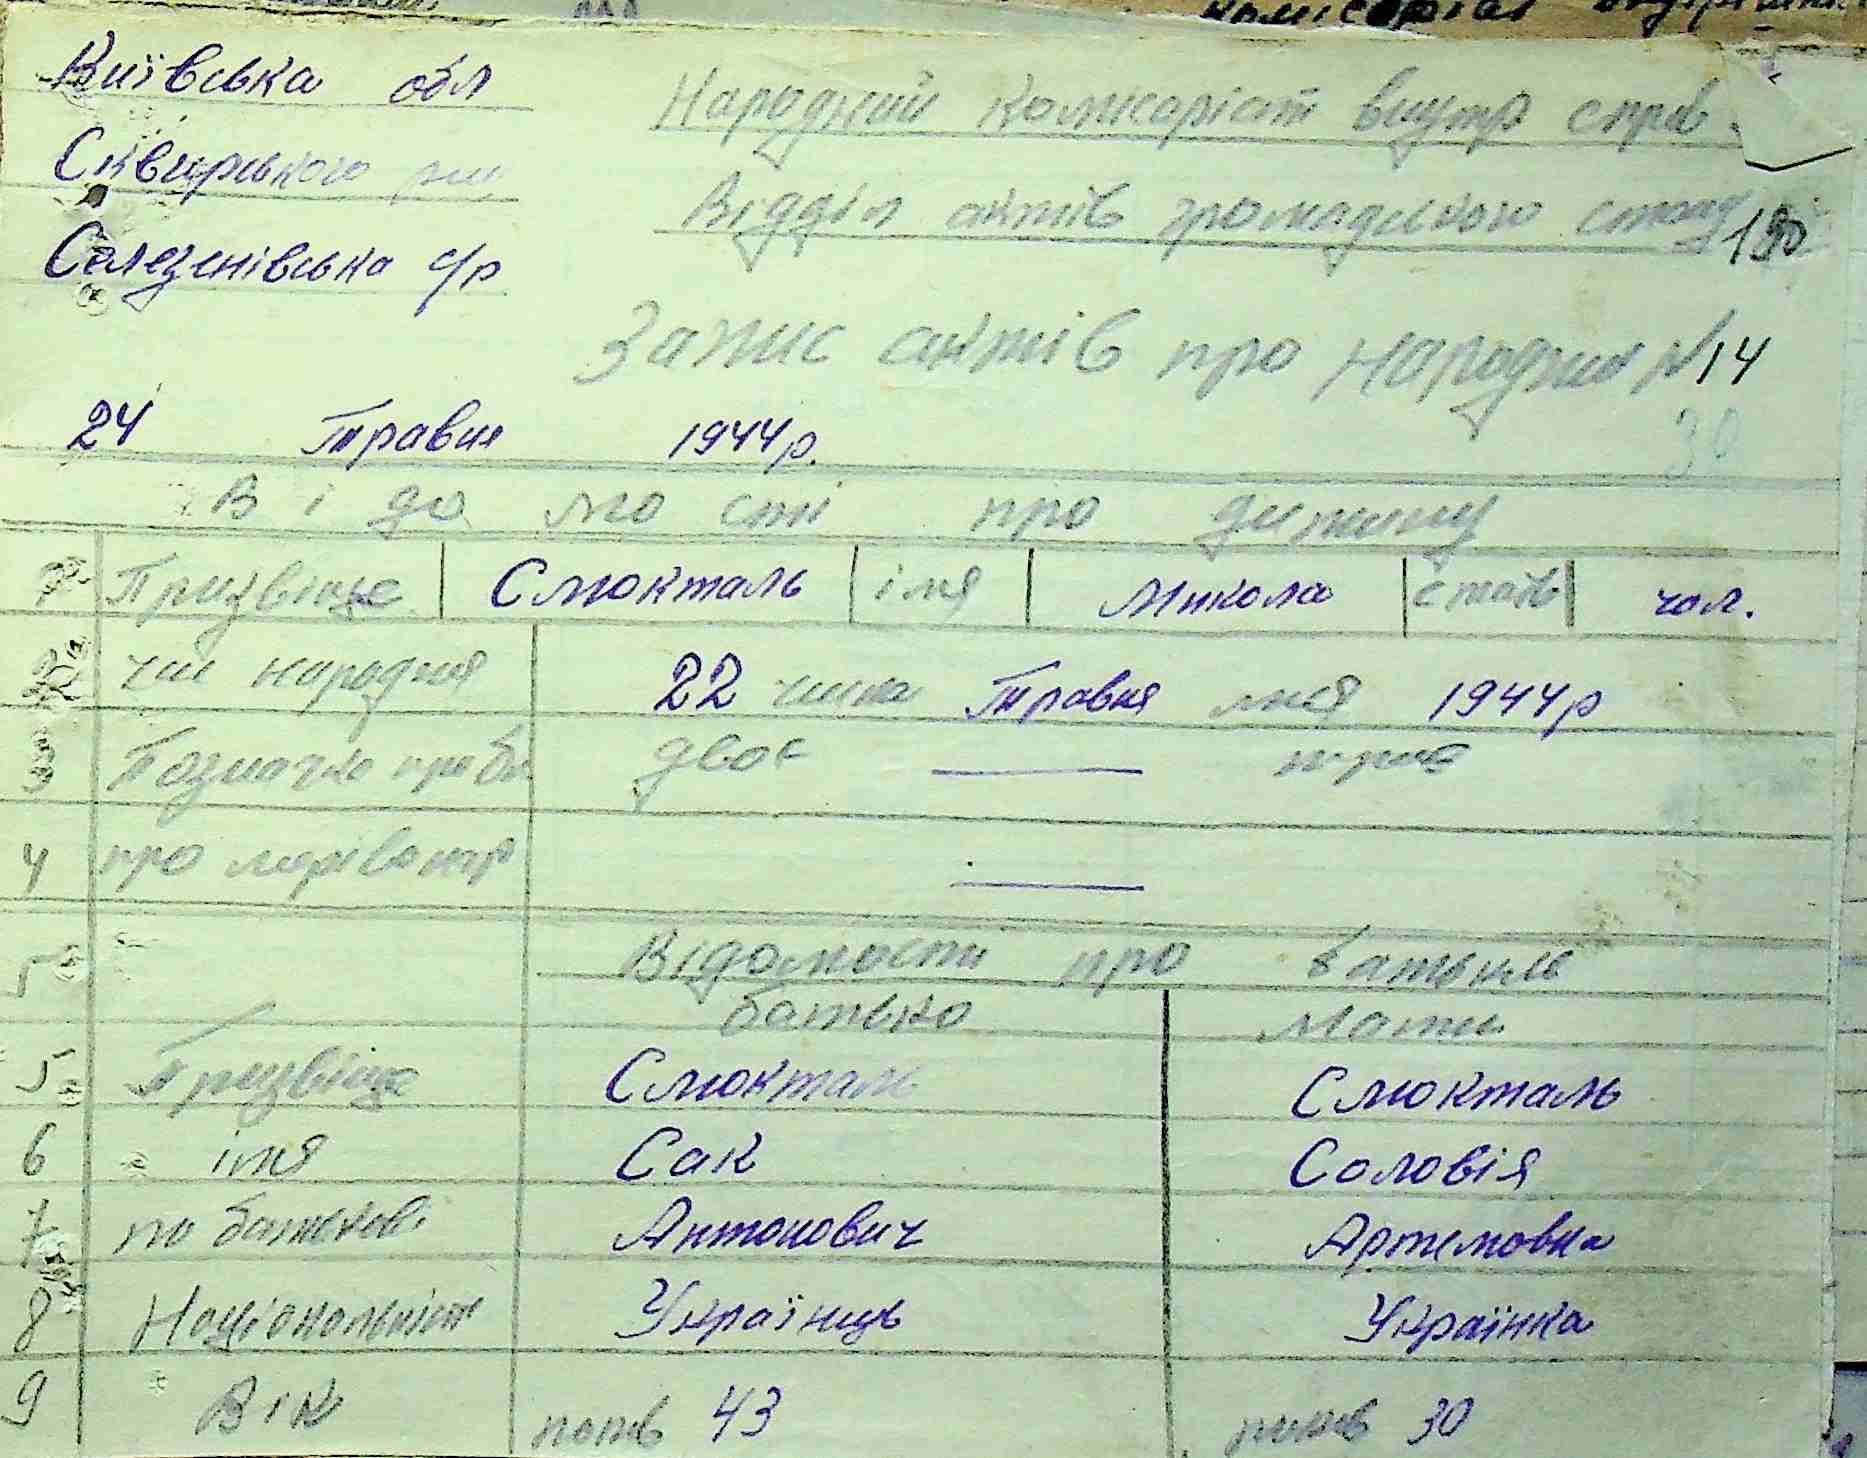 Київська обл
Сквирського рну
Селезенівська с/р
Народний комісаріат внутр справ
Відділ актів громадського стану
Запис актів про народжин №14
24 Травня 1944р.
30
Відомості про дитину
Призвіще Смокталь імя Микола стать чол.
2 час народжня 22 числа Травня мця 1944р
3 Позначка про бл двоє — троє
4 про мертвонар —
5 Відомости про батьків
батько Мати
5 Призвіще Смокталь Смокталь
6 імя Сак Соловія
7 по батькові Антонович Артемовна
8 Національність Українць Українка
9 Вік повнів 43 повнів 30